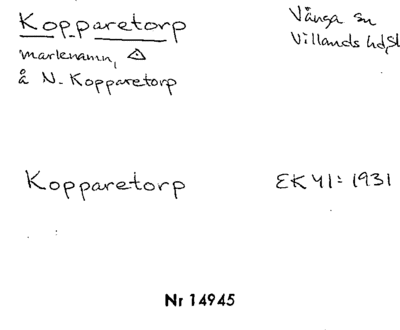 Kopparetorp
Vånga sn
marknamn,
Villands hd, Sk
å N. Kopparetorp
Kopparetorp
EK 41: 1931
Nr 14945